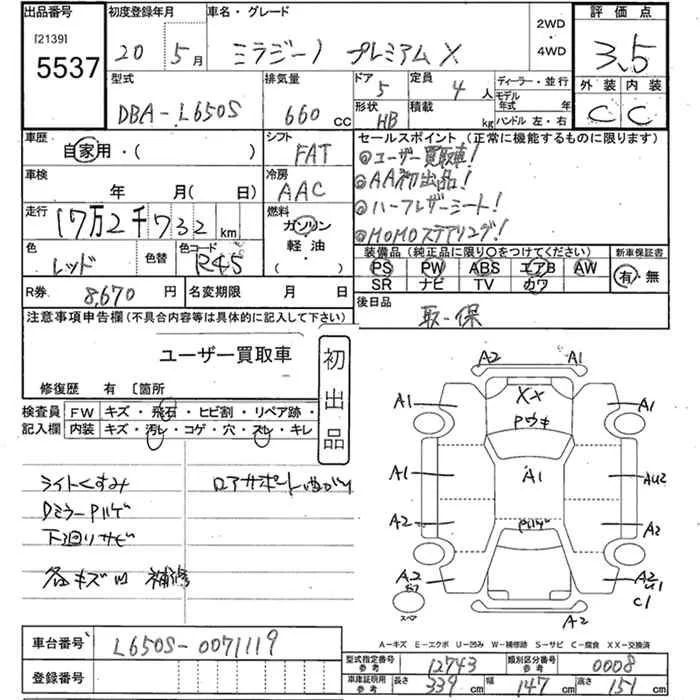 出品番号 初度登録年月 車名・グレード 2WD・4WD 評価点
[2139]
5537 20 5月 ミラジーノ プレミアムX 3.5
型式 排気量 ドア 5 定員 4人 ディーラー・並行 外装 内装
DBA-L650S 660 cc 形状 HB 積載 kg モデル年式 年 C C
ハンドル 左・右
車歴 シフト セールスポイント (正常に機能するものに限ります)
自家用・( ) FAT ◎ユーザー買取車!
車検 冷房 ◎AA初出品!
年 月( 日) AAC ◎ハーフレザーシート!
走行 燃料 ◎MOMOステアリング!
17万2千732km ガソリン
色 色替 色コード 軽油 装備品 (純正品に限り○をつけてください) 新車保証書
レッド R45 ( ) PS PW ABS エアB AW 有・無
SR ナビ TV カワ
R券 8,670円 名変期限 月 日 後日品
取・保
注意事項申告欄(不具合内容等は具体的に記入して下さい)
ユーザー買取車
初出品
修復歴 有 〔箇所
検査員 FW キズ・飛石・ヒビ割・リペア跡・
記入欄 内装 キズ・汚レ・コゲ・穴・スレ・キレ
ライトくすみ ロアサポートまがり
DミラーPハゲ
下廻リサビ
各キズ凹 補修
A2 A1
A1 XX A1
Pウキ
A1 A1 AU2
A2 Pハゲ A2
A2 A2
U1
C1
スペア A2
A-キズ E-エクボ U-凹み W-補修跡 S-サビ C-腐食 XX-交換済
車台番号 L650S-0071119
登録番号
型式指定番号 参考 12743 類別区分番号 参考 0008
車庫証明用 参考 長さ 339cm 幅 147cm 高さ 151cm